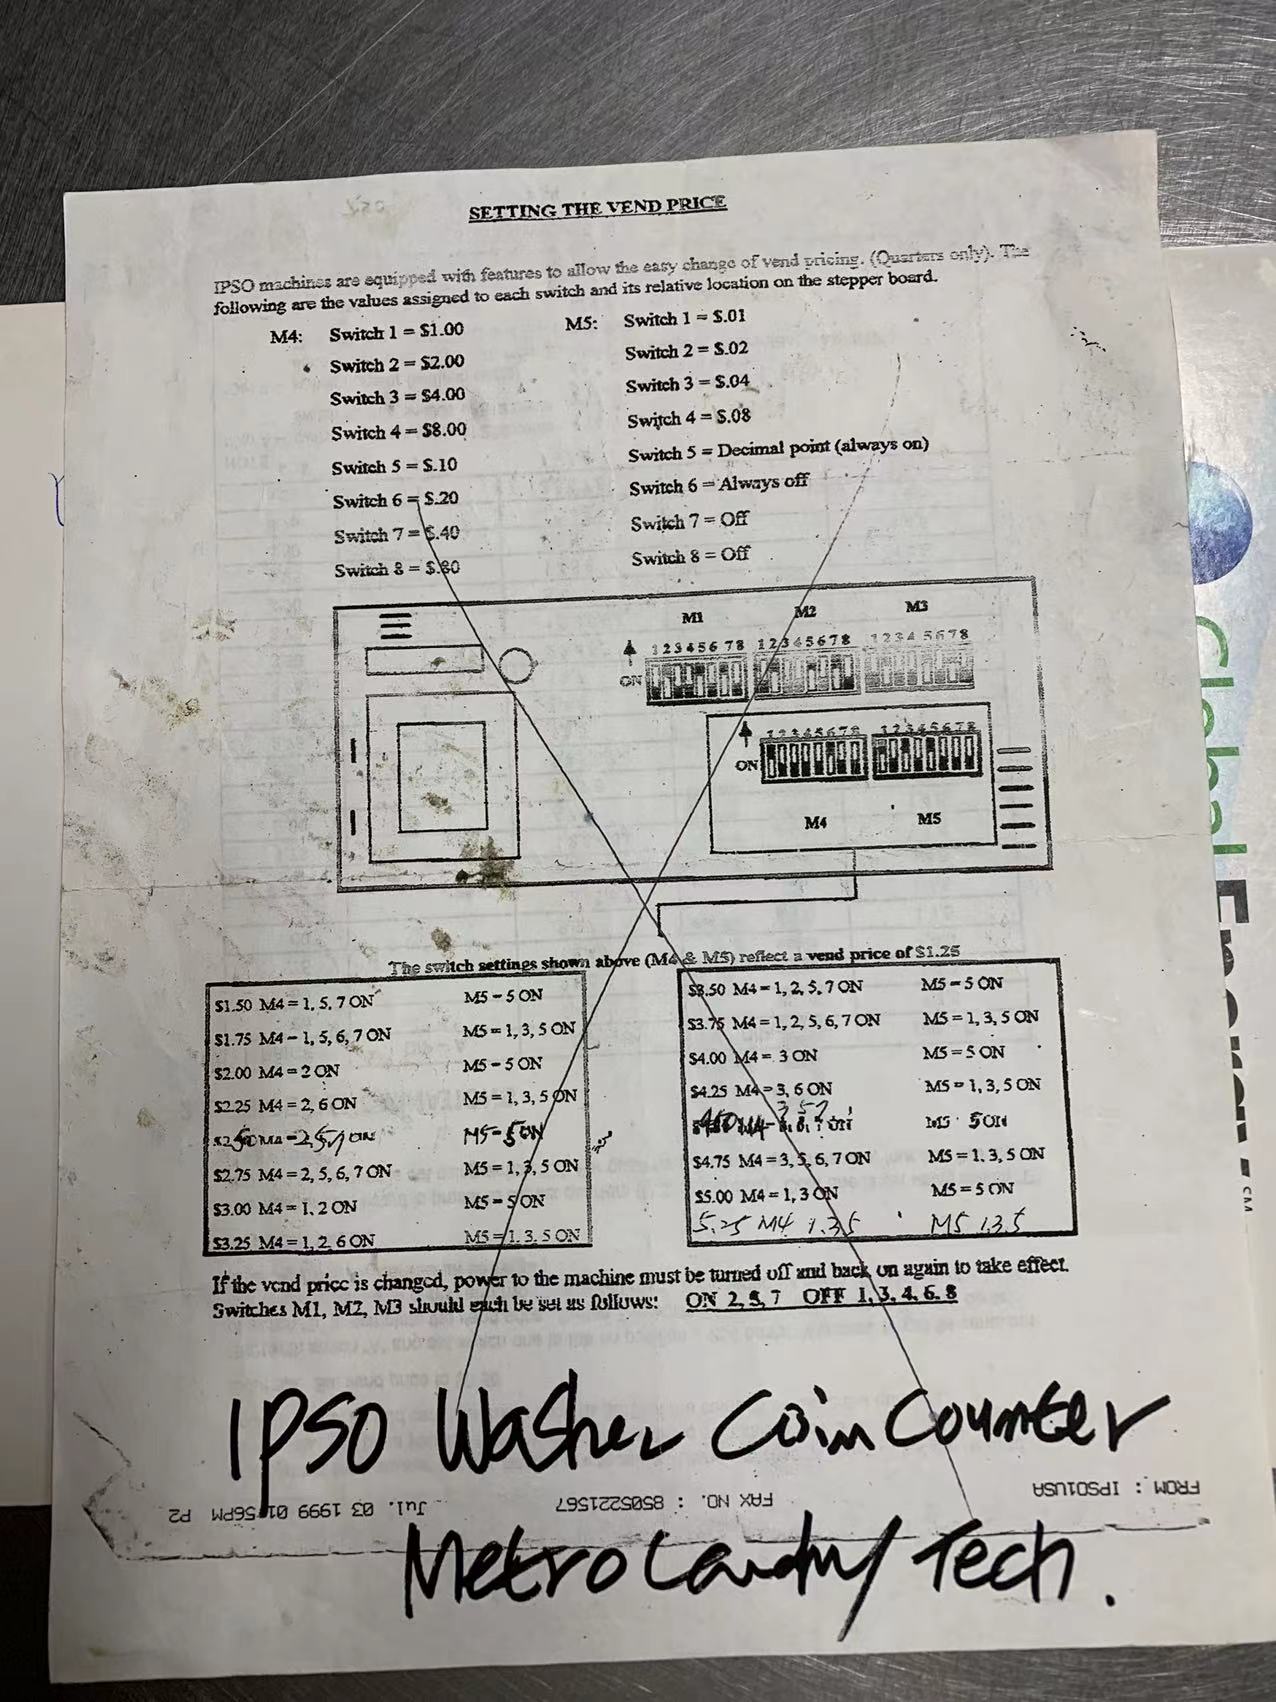 SETTING THE VEND PRICE
IPSO machines are equipped with features to allow the easy change of vend pricing. (Quarters only). The
following are the values assigned to each switch and its relative location on the stepper board.
M4: Switch 1 = $1.00
Switch 2 = $2.00
Switch 3 = $4.00
Switch 4 = $8.00
Switch 5 = $.10
Switch 6 = $.20
Switch 7 = $.40
Switch 8 = $.80
M5: Switch 1 = $.01
Switch 2 = $.02
Switch 3 = $.04
Switch 4 = $.08
Switch 5 = Decimal point (always on)
Switch 6 = Always off
Switch 7 = Off
Switch 8 = Off
M1 M2 M3
12345678 12345678 12345678
ON
12345678 12345678
ON
M4 M5
The switch settings shown above (M4 & M5) reflect a vend price of $1.25
$1.50 M4 = 1, 5, 7 ON M5 = 5 ON
$1.75 M4 = 1, 5, 6, 7 ON M5 = 1, 3, 5 ON
$2.00 M4 = 2 ON M5 = 5 ON
$2.25 M4 = 2, 6 ON M5 = 1, 3, 5 ON
$2.50 M4 = 2 5 7 ON M5 = 5 ON
$2.75 M4 = 2, 5, 6, 7 ON M5 = 1, 3, 5 ON
$3.00 M4 = 1, 2 ON M5 = 5 ON
$3.25 M4 = 1, 2, 6 ON M5 = 1, 3, 5 ON
$3.50 M4 = 1, 2, 5, 7 ON M5 = 5 ON
$3.75 M4 = 1, 2, 5, 6, 7 ON M5 = 1, 3, 5 ON
$4.00 M4 = 3 ON M5 = 5 ON
$4.25 M4 = 3, 6 ON M5 = 1, 3, 5 ON
450 M4 = 3 5 7 ON M5 5 ON
$4.75 M4 = 3, 5, 6, 7 ON M5 = 1, 3, 5 ON
$5.00 M4 = 1, 3 ON M5 = 5 ON
5.25 M4 1.3 5 M5 1.3 5
If the vend price is changed, power to the machine must be turned off and back on again to take effect.
Switches M1, M2, M3 should each be set as follows: ON 2, 5, 7 OFF 1, 3, 4, 6, 8
IPSO Washer Coin Counter
FROM : IPSO1USA FAX NO. : 8505221567 Jul. 03 1999 01:56PM P2
Metro Laundry Tech.